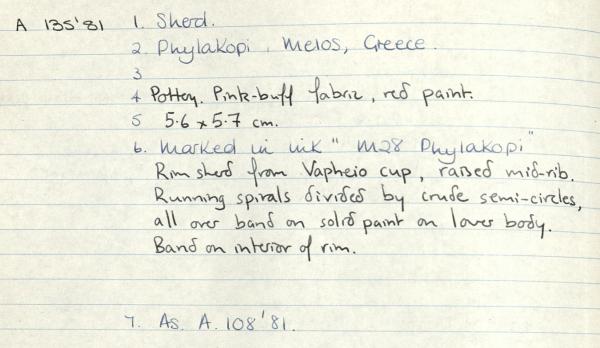 A 135'81 1. Sherd.
2. Phylakopi, Melos, Greece.
3
4 Pottery. Pink-buff fabric, red paint.
5 5·6 x 5·7 cm.
6. Marked in ink "M28 Phylakopi"
Rim sherd from Vapheio cup, raised mid-rib.
Running spirals divided by crude semi-circles,
all over band on solid paint on lower body.
Band on interior of rim.
7. As. A. 108'81.